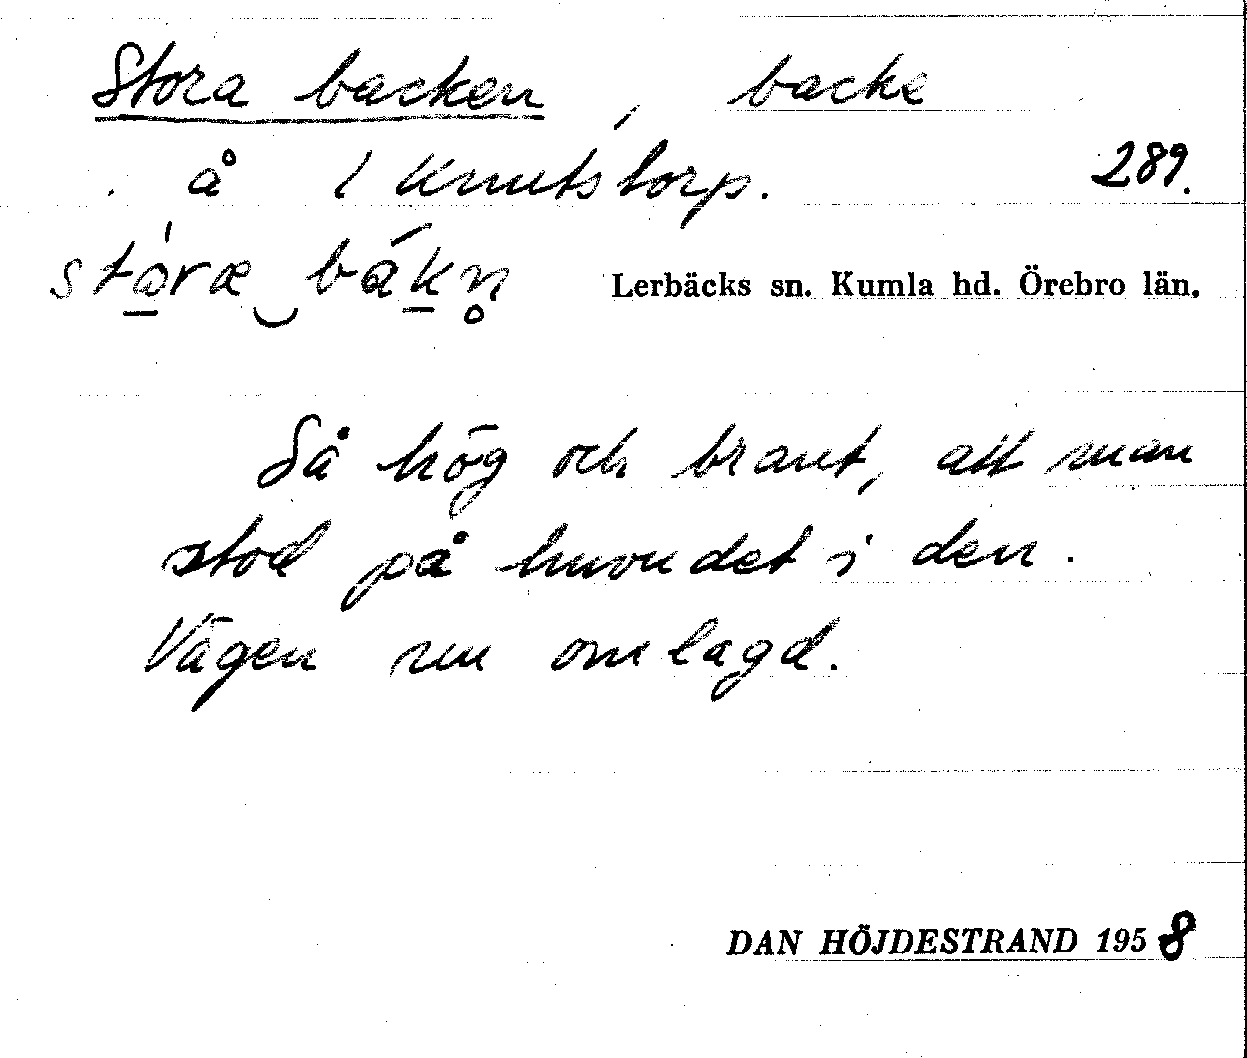 Stora backen, backe
å 1 Knutstorp. 289.
Lerbäcks sn. Kumla hd. Örebro län.
Så hög och brant, att man
stod på huvudet i den.
Vägen nu omlagd.
DAN HÖJDESTRAND 1958